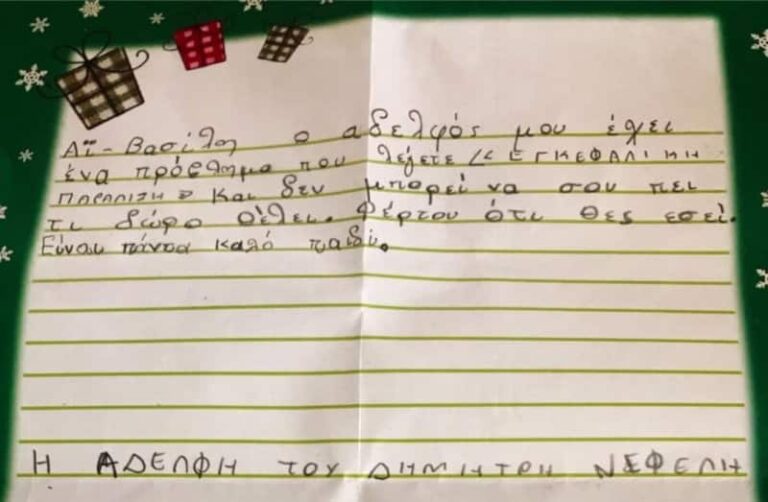 Αϊ-Βασίλη ο αδελφός μου έχει
ένα πρόβλημα που λέγετε << ΕΓΚΕΦΑΛΙΚΗ
ΠΑΡΑΛΙΣΗ >> και δεν μπορεί να σου πει
τι δώρο θέλει. Φέρτου ότι θες εσεί.
Είναι πάντα καλό παιδί.
Η ΑΔΕΛΦΗ ΤΟΥ ΔΗΜΗΤΡΗ ΝΕΦΕΛΗ